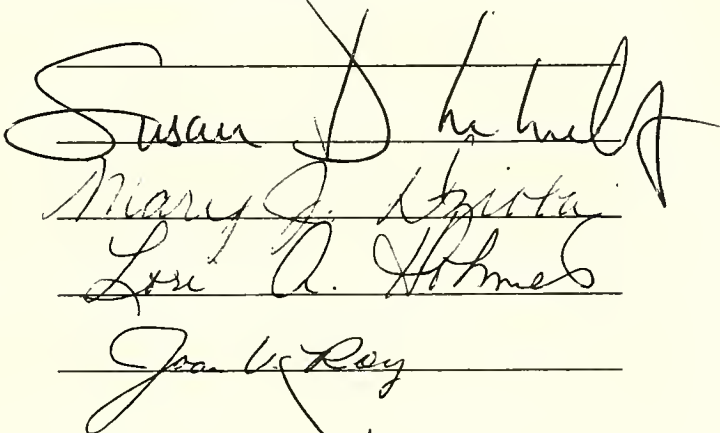 Susan D.
Mary J.
Lori A. Holmes
Joan V. Roy